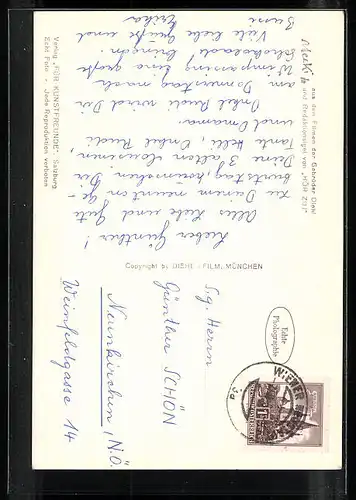 Mecki
aus den Filmen der Gebrüder Diehl
und Redaktionsigel von „HÖR ZU!"
Lieber Günther!
Alles Liebe und Gute
zu Deinem neunten Ge-
burtstag, wünschen Dir
Deine 3 alten
Tante Helli, Onkel Rudi
und Omama.
Onkel Rudi wird Dir
am Donnerstag nach
Wimpassing eine große
Schokolade bringen.
Viele liebe Grüße und
Bussi Erika
Verlag „FÜR KUNSTFREUNDE" Salzburg
Zeht Foto - Jede Reproduktion verboten
Copyright by DIEHL-FILM, MÜNCHEN
Echte
Photographie
WIENER
Sg. Herrn
Günther SCHÖN
Neunkirchen, N.Ö.
Weinfeldgasse 14